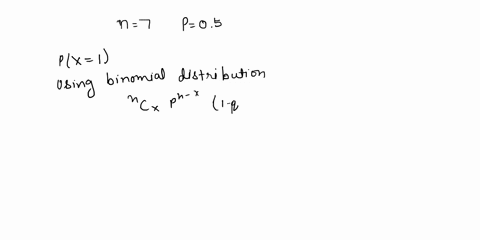 n=7 P=0.5
P(X=1)
using binomial distribution
ⁿCₓ pⁿ⁻ˣ (1-q